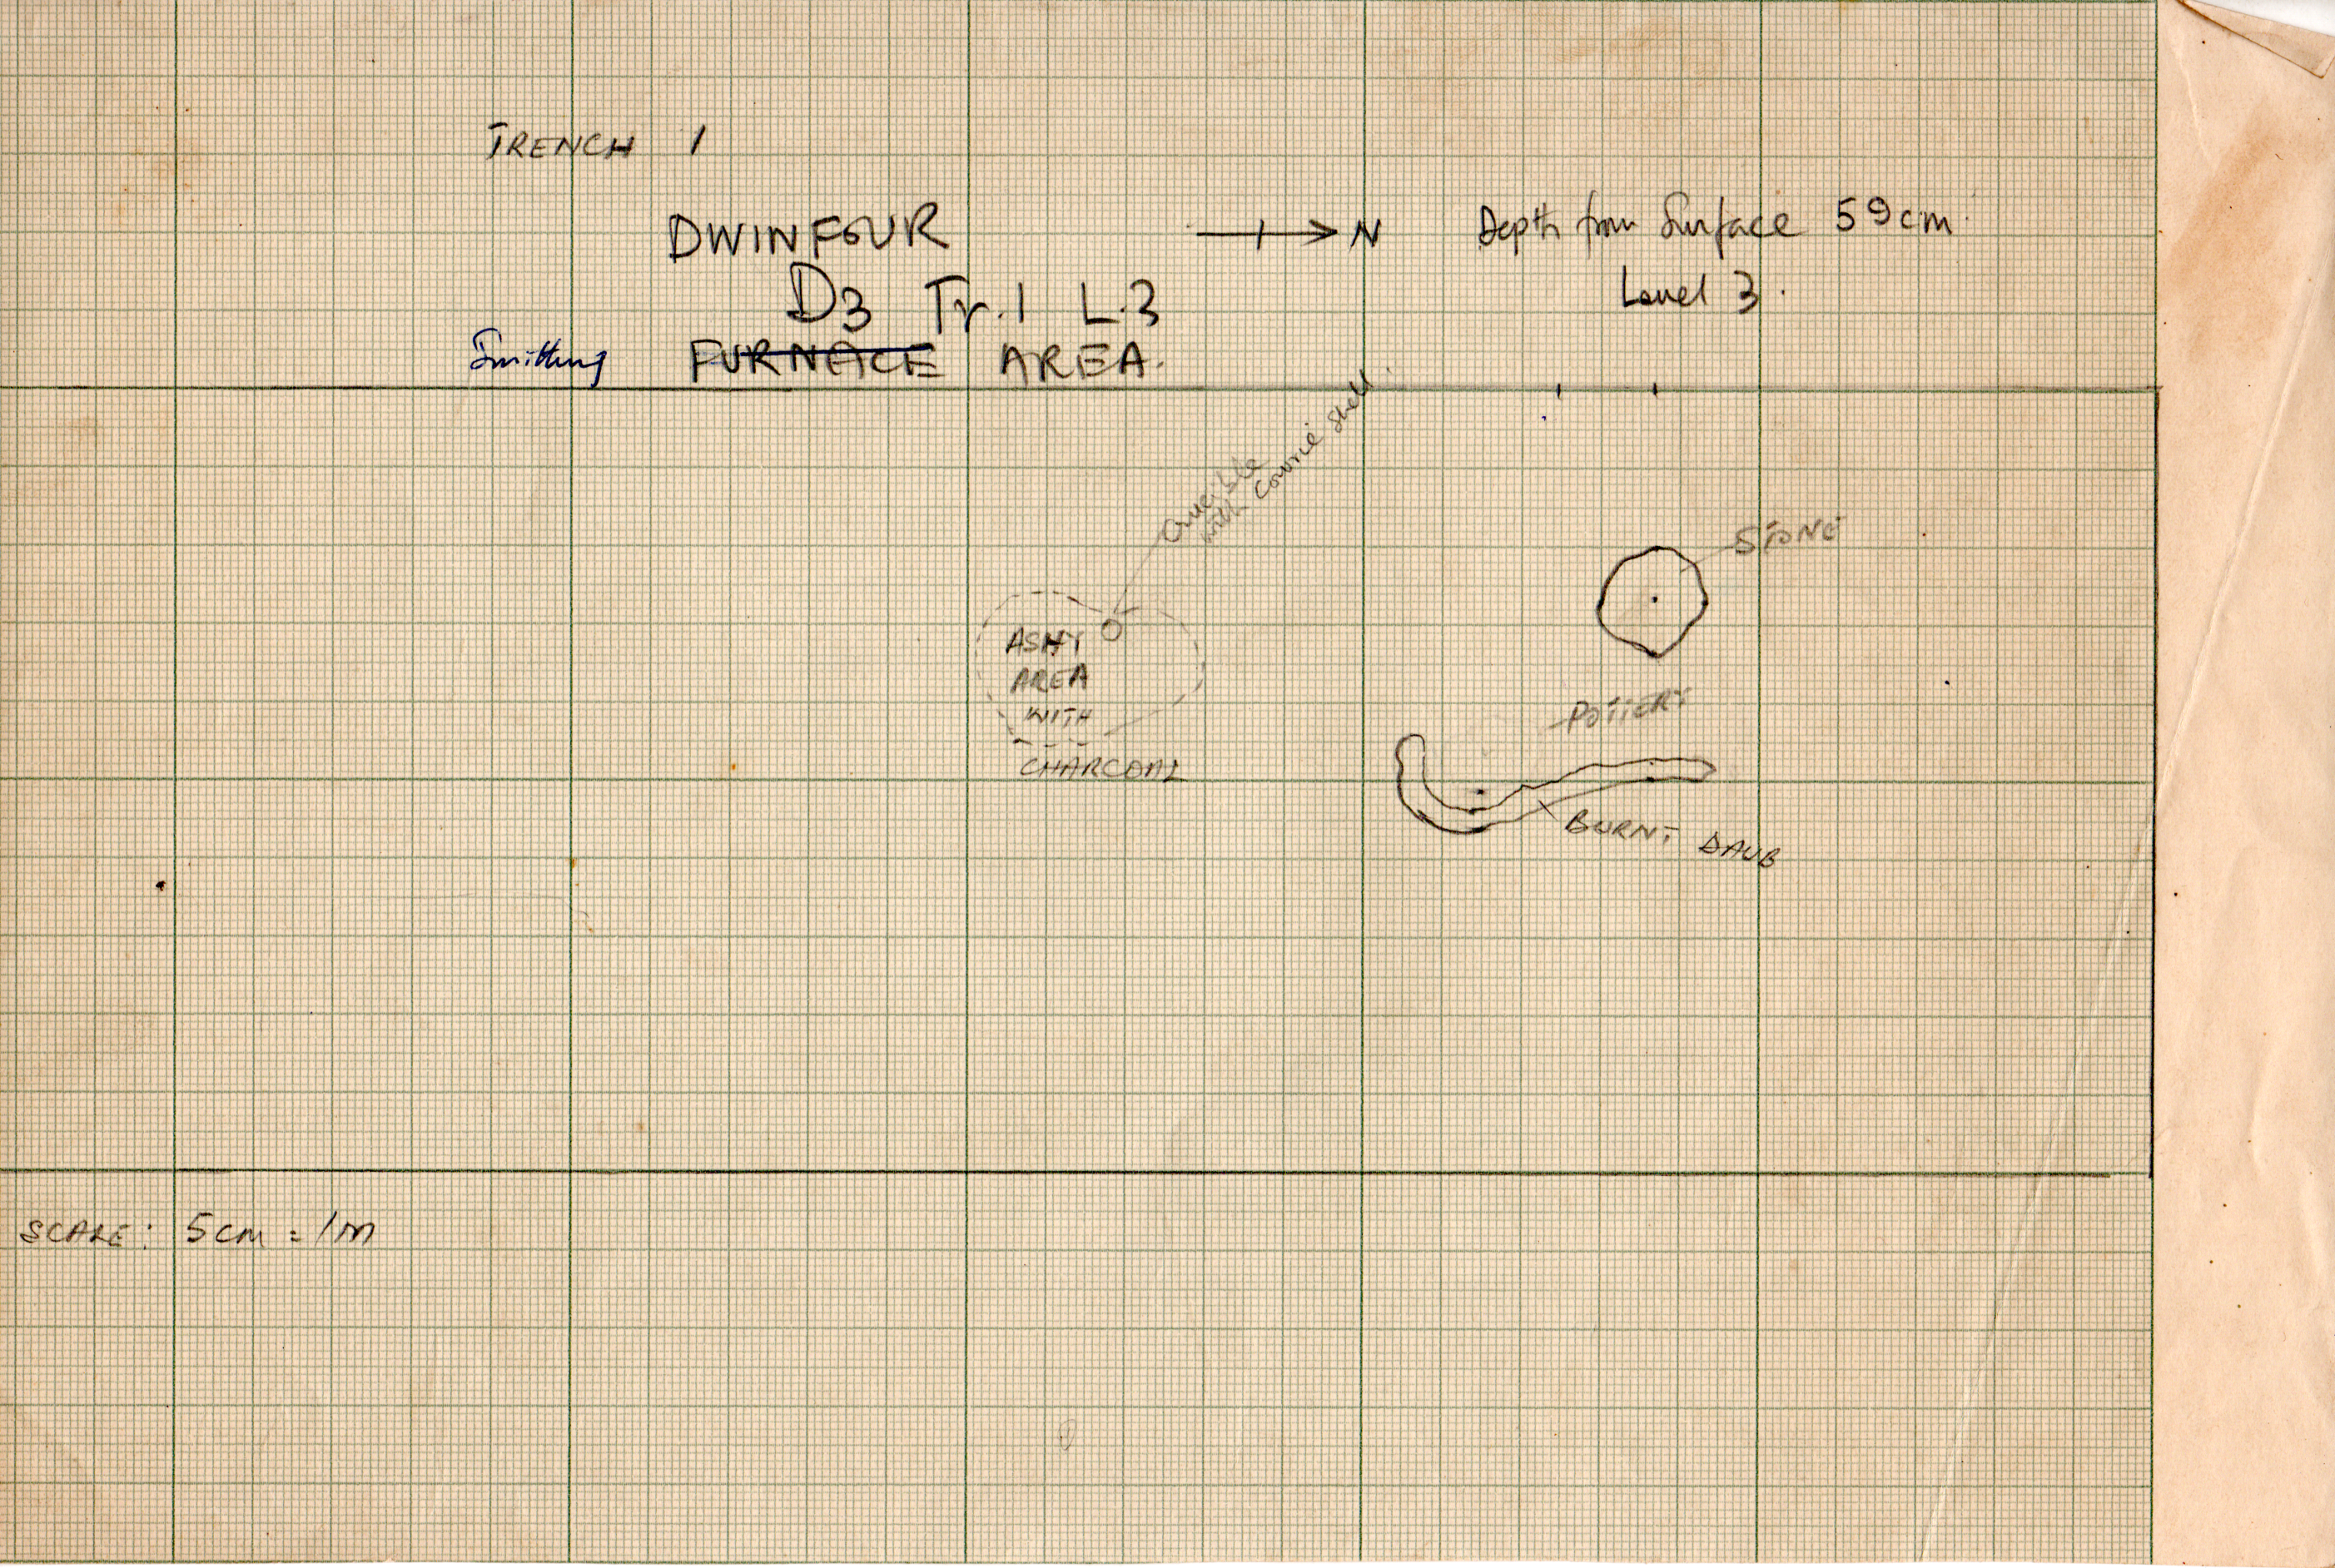 TRENCH 1
DWINFOUR
D3 Tr.1 L.3
Smithing FURNACE AREA.
N
Depth from Surface 59cm.
Level 3.
Crucible
with Cowrie Shell
STONE
ASHY
AREA
WITH
CHARCOAL
POTTERY
BURNT DAUB
SCALE: 5cm = 1m